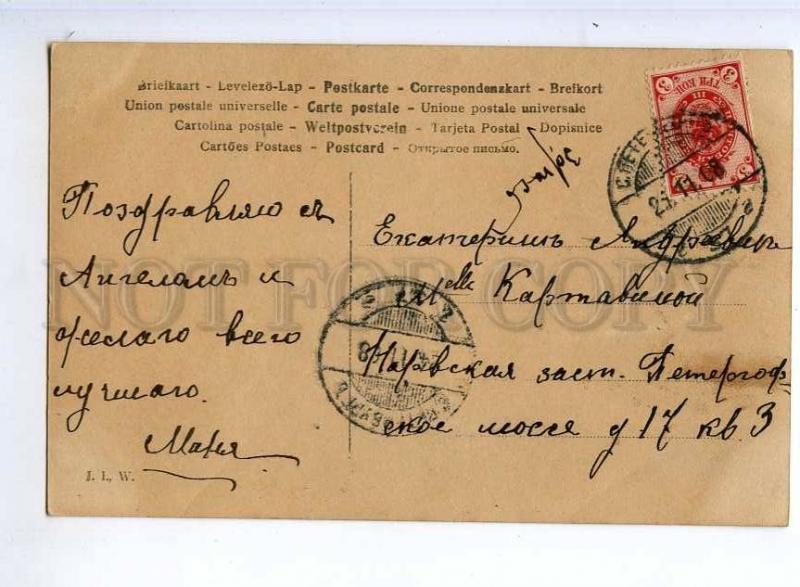 Briefkaart - Levelező-Lap - Postkarte - Correspondenzkart - Brefkort
Union postale universelle - Carte postale - Unione postale universale
Cartolina postale - Weltpostverein - Tarjeta Postal - Dopisnice
Cartões Postaes - Postcard - Открытое письмо.
Поздравляю съ
Ангеломъ и
желаю всего
лучшаго.
J. I., W.
здѣсь
Екатеринѣ Андревнѣ
M^elle Картавиной
Нарвская заст. Петергоф-
ское шоссе д 17 кв 3
ТРИ КОП.
3
С.ПЕТЕ
23.11.08
NOT FOR COPY